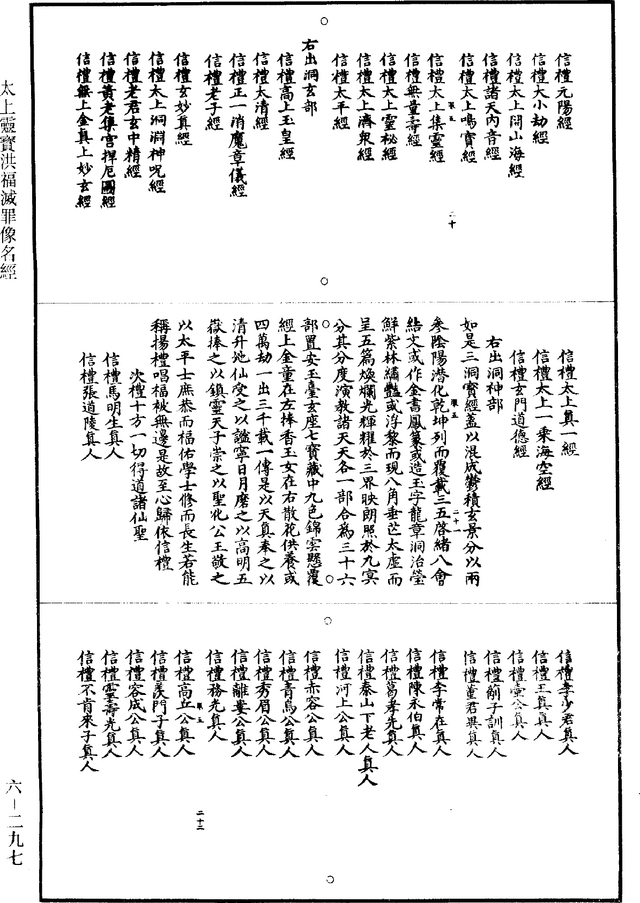 太上靈寶洪福滅罪像名經
信禮元陽經
信禮大小劫經
信禮太上開山海經
信禮諸天內音經
信禮太上鳴寶經
信禮太上集靈經
信禮無量壽經
信禮太上靈秘經
信禮太上濟衆經
信禮太平經
右出洞玄部
信禮高上玉皇經
信禮太清經
信禮正一消魔章儀經
信禮老子經
信禮玄妙真經
信禮太上洞淵神呪經
信禮老君玄中精經
信禮黃老集宫捍厄圖經
信禮無上金真上妙玄經
二十
信禮太上真一經
信禮太上一乗海空經
信禮玄門道德經
右出洞神部
如是三洞寶經蓋以混成欝積玄景分以兩
參陰陽潜化乾坤列而覆載三五啓緒八會
結文或作金書鳳篆或造玉字龍章洞治瑩
鮮紫林繡豔或浮黎而現八角垂芒太虛而
呈五篇煥爛光輝耀於三界映朗照於九冥
分其分度演教諸天各一部合為三十六
部置安玉臺玄座七寶藏中九色錦雲懸覆
經上金童在左捧香玉女在右散花供養或
四萬劫一出三千載一傳是以天真奉之以
清升地仙受之以謐寧日月磨之以高明五
嶽捧之以鎮靈天子崇之以聖化公王敬之
以太平士庶恭而福佑學士修而長生若能
稱揚禮唱福被無邊是故至心歸依信禮
次禮十方一切得道諸仙聖
信禮馬明生真人
信禮張道陵真人
二十一
信禮李少君真人
信禮王真真人
信禮壼公真人
信禮薊子訓真人
信禮董君異真人
信禮李常在真人
信禮陳永伯真人
信禮葛孝先真人
信禮泰山下老人真人
信禮河上公真人
信禮赤容公真人
信禮青烏公真人
信禮秀眉公真人
信禮離婁公真人
信禮務光真人
信禮高丘公真人
信禮羨門子真人
信禮容成公真人
信禮靈壽光真人
信禮不肯來子真人
二十二
六－二九七